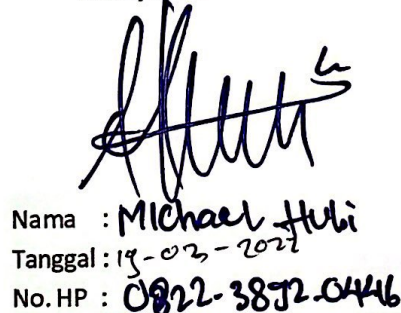 Nama : Michael Hubi
Tanggal : 19-03-2022
No. HP : 0822-3892-0446